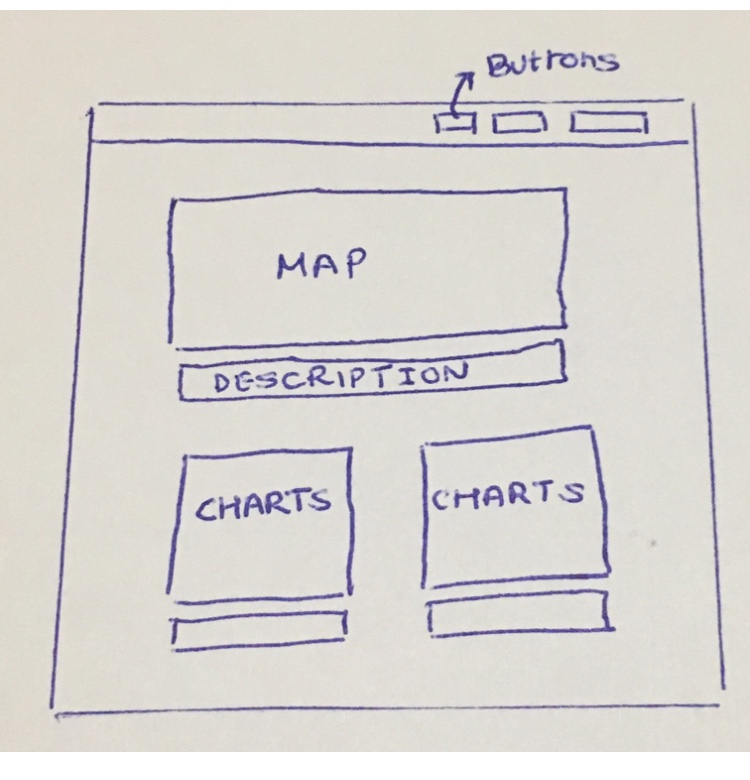 Buttons
MAP
DESCRIPTION
CHARTS
CHARTS